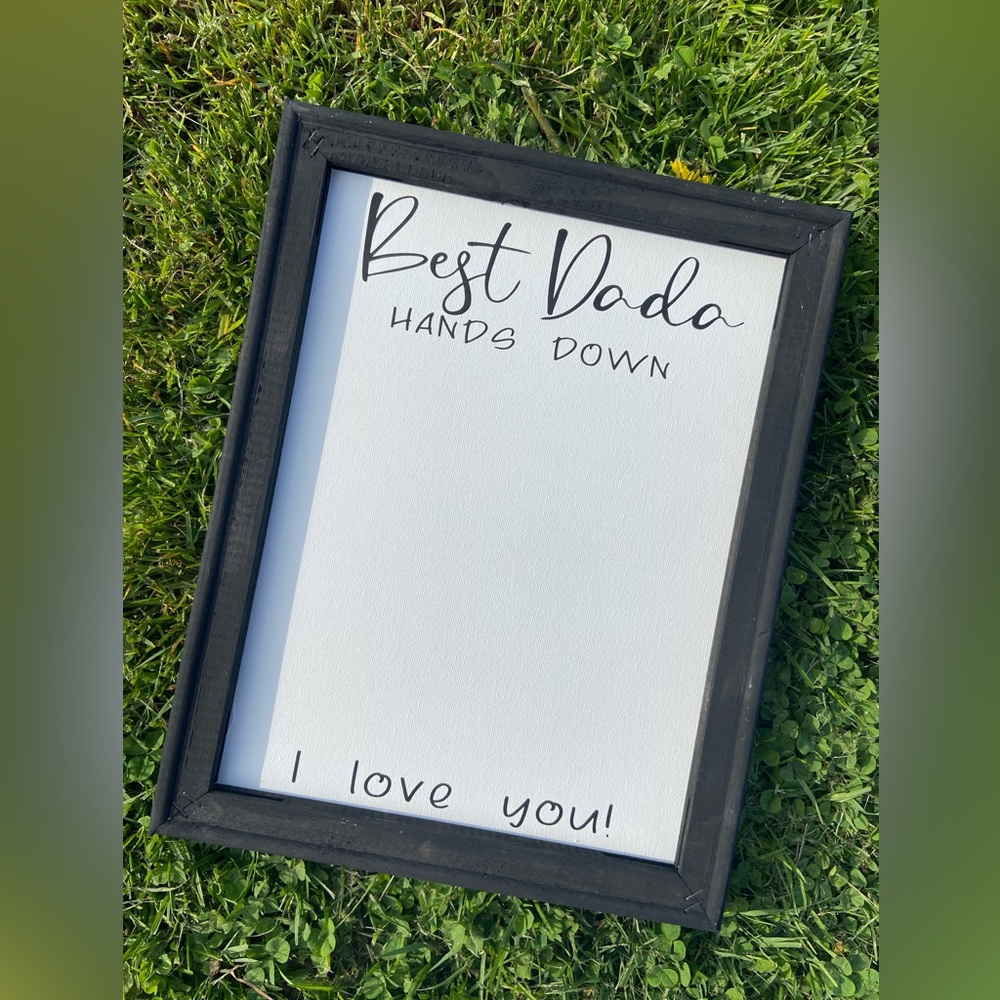 Best Dada
HANDS DOWN
I love you!